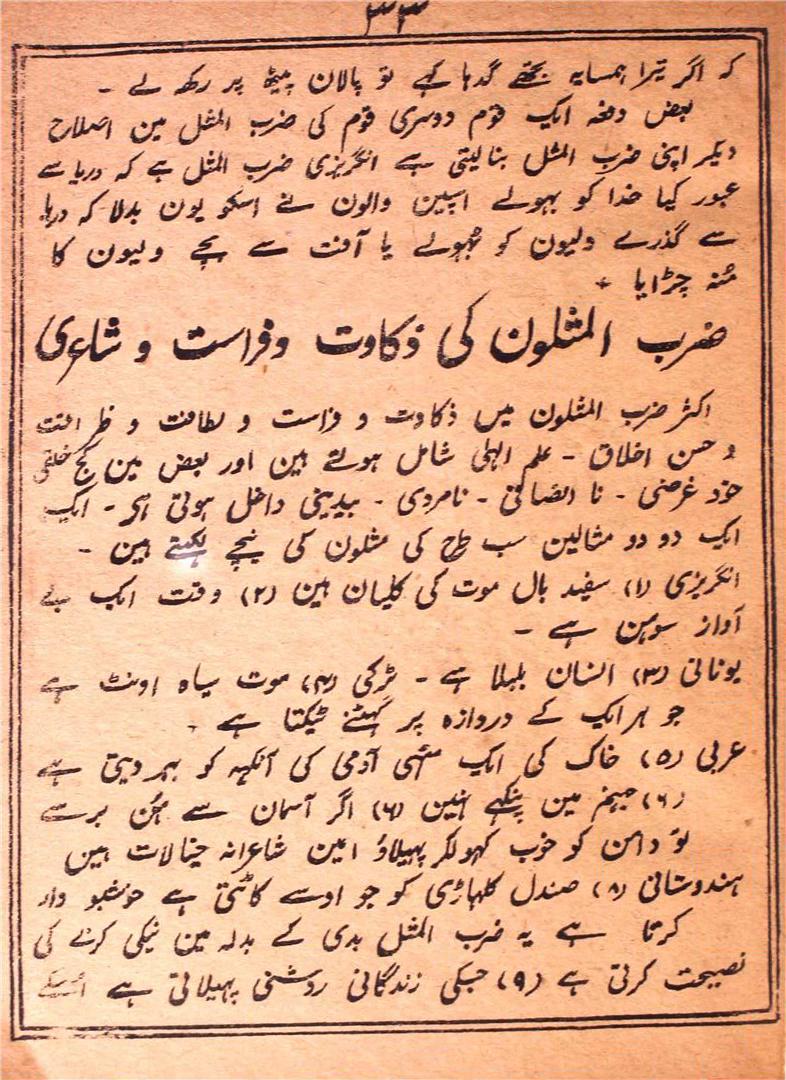 ۳۳
کہ اگر تیرا ہمسایہ تجھے گدہا کہے تو پالان پیٹھ پر رکھ لے ۔
بعض دفعہ ایک قوم دوسری قوم کی ضرب المثل مین اصلاح
دیکر اپنی ضرب المثل بنالیتی ہے انگریزی ضرب المثل ہے کہ دریا سے
عبور کیا خدا کو بہولے اسپین والون نے اسکو یون بدلا کہ دریا
سے گذرے ولیون کو بُہولے یا آفت سے بچے ولیون کا
مُنہ چڑایا
ضرب المثلون کی ذکاوت و فراست و شاعری
اکثر ضرب المثلون میں ذکاوت و فراست و لطافت و ظرافت
و حسن اخلاق ۔ علم الہٰی شامل ہوتے ہین اور بعض مین کج خلقی
خود غرضی ۔ نا انصافی ۔ نامردی ۔ بیدینی داخل ہوتی ہے ۔ ایک
ایک دو دو مثالین سب طرح کی مثلون کی نیچے لکہتے ہین ۔
انگریزی (۱) سفید بال موت کی کلیان ہین (۲) وقت ایک بے
آواز سوہن ہے ۔
یونانی (۳) انسان بلبلا ہے ۔ ترکی (۴) موت سیاہ اونٹ ہے
جو ہر ایک کے دروازہ پر گہٹنے ٹیکتا ہے ۔
عربی (۵) خاک کی ایک مٹہی آدمی کی آنکہہ کو بہر دیتی ہے
(۶) جہنم مین پنکہے نہین (۶) اگر آسمان سے ہُن برسے
تو دامن کو خوب کہولکر پہیلاؤ امین شاعرانہ خیالات ہین
ہندوستانی (۸) صندل کلہاڑی کو جو اوسے کاٹتی ہے خوشبو دار
کرتا ہے یہ ضرب المثل بدی کے بدلہ مین نیکی کرنے کی
نصیحت کرتی ہے (۹) جسکی زندگانی روشنی پہیلاتی ہے اسکے